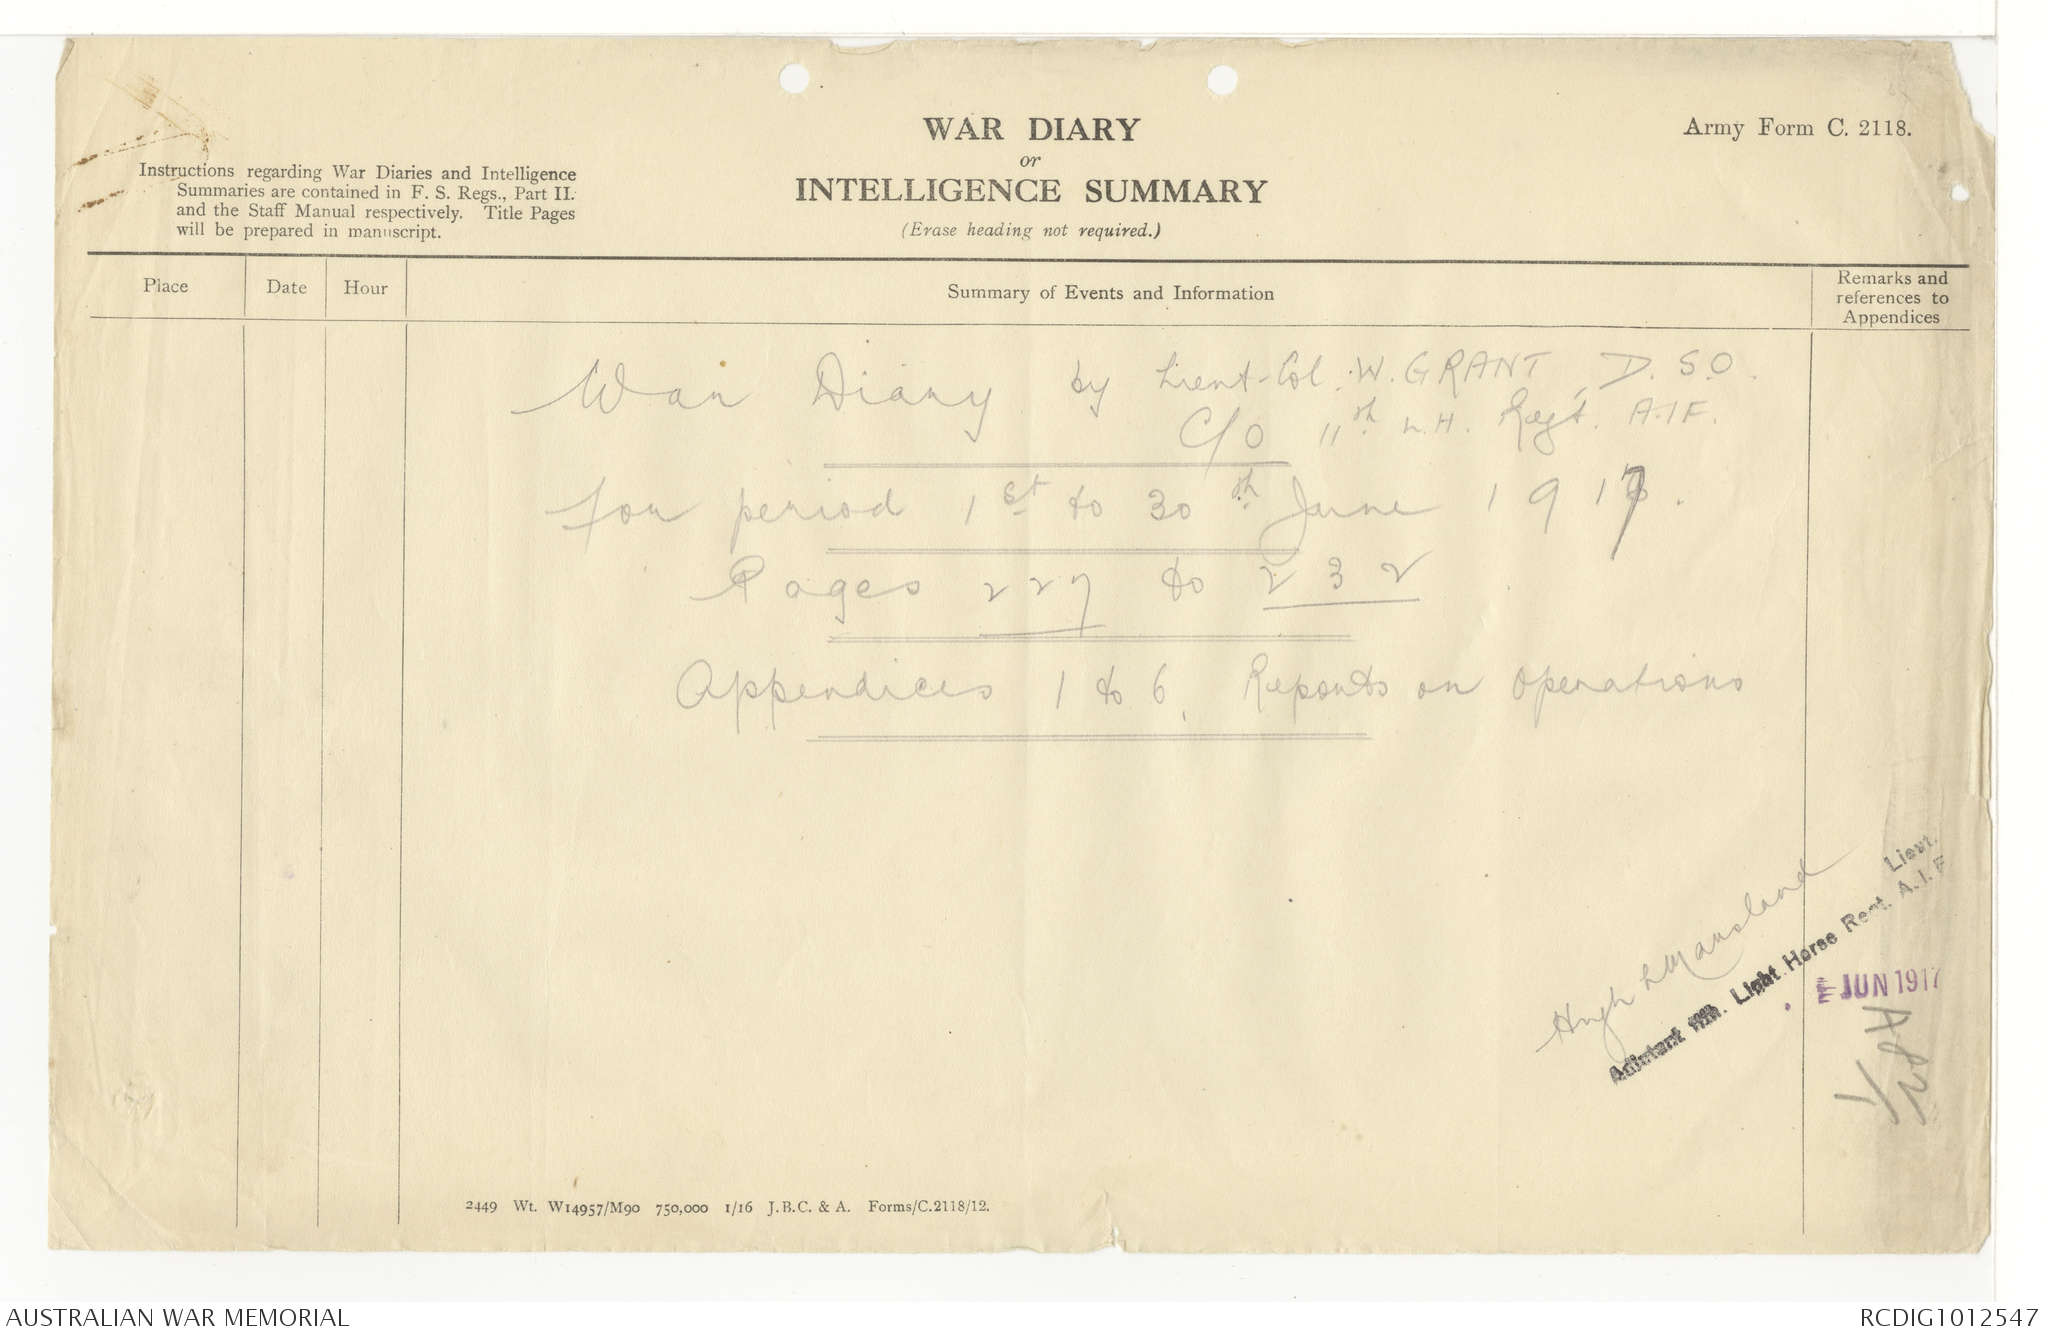 WAR DIARY
or
INTELLIGENCE SUMMARY
(Erase heading not required.)
Army Form C. 2118.
Instructions regarding War Diaries and Intelligence
Summaries are contained in F. S. Regs., Part II.
and the Staff Manual respectively. Title Pages
will be prepared in manuscript.
Place
Date
Hour
Summary of Events and Information
Remarks and
references to
Appendices
War Diary by Lieut-Col. W. GRANT, D.S.O.
C/O 11th L.H. Regt. A.I.F.
for period 1st to 30th June 1917.
Pages 227 to 232
Appendices 1 to 6. Reports on Operations
Hugh
Lieut.
Adjutant 11th. Light Horse Regt. A.I.F
JUN 1917
2449 Wt. W14957/M90 750,000 1/16 J.B.C. & A. Forms/C.2118/12.
AUSTRALIAN WAR MEMORIAL
RCDIG1012547